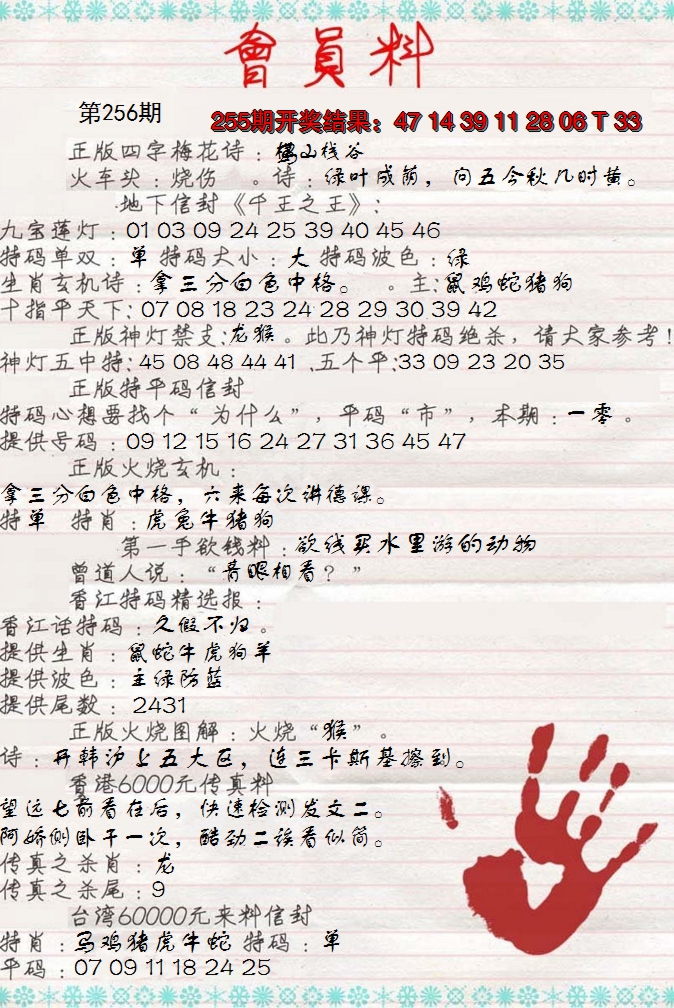 會員料
第256期
255期开奖结果：47 14 39 11 28 06 T 33
正版四字梅花诗：山栈谷
火车头：烧伤 。诗：绿叶成荫，问五今秋几时黄。
地下信封《千王之王》：
九宝莲灯：01 03 09 24 25 39 40 45 46
特码单双：单 特码大小：大 特码波色：绿
生肖玄机诗：拿三分白色中格。 。主：鼠鸡蛇猪狗
十指平天下：07 08 18 23 24 28 29 30 39 42
正版神灯禁支：龙猴。此乃神灯特码绝杀，请大家参考！
神灯五中特：45 08 48 44 41 .五个平：33 09 23 20 35
正版特平码信封
特码心想要找个“为什么”，平码“市”，本期：一零。
提供号码：09 12 15 16 24 27 31 36 45 47
正版火烧玄机：
拿三分白色中格，六来每次讲德课。
特单 特肖：虎兔牛猪狗
第一手欲钱料：欲钱买水里游的动物
曾道人说：“青眼相看？”
香江特码精选报：
香江话特码：久假不归。
提供生肖：鼠蛇牛虎狗羊
提供波色：主绿防蓝
提供尾数：2431
正版火烧图解：火烧“猴”。
诗：开韩沙上五大区，连三卡斯基擦到。
香港6000元传真料
望远七前看在后，快速检测发文二。
阿娇侧卧千一次，酷劲二误看似简。
传真之杀肖：龙
传真之杀尾：9
台湾60000元来料信封
特肖：马鸡猪虎牛蛇 特码：单
平码：07 09 11 18 24 25